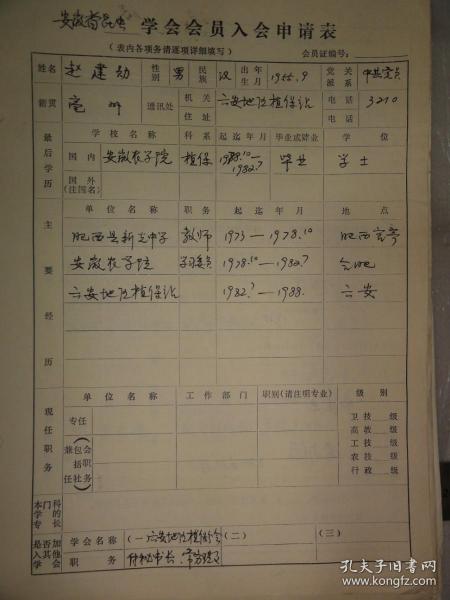 安徽省昆虫 学会会员入会申请表
(表内各项务请逐项详细填写) 会员证编号:
姓名 赵建幼 性别 男 民族 汉 出生年月 1955.9 党派关系 中共党员
籍贯 亳州 通讯处 机关 六安地区植保站 电话 3210
住址 电话
最后学历 学校名称 科系 起迄年月 毕业或肄业 学位
国内 安徽农学院 植保 1978.10—1982.7 毕业 学士
国外(注国名)
主要经历 单位名称 职务 起迄年月 地点
肥西县新光中学 教师 1973—1978.10 肥西
安徽农学院 学习委员 1978.10—1982.7 合肥
六安地区植保站 1982.7—1988. 六安
现任职务 单位名称 工作部门 职别(请注明专业) 级别
专任 卫技 级
高教 级
兼任(包括社会职务) 工技 级
农技 级
行政 级
本门学科的专长
是否加入其他学会 学会名称 (一)六安地区植保学会 (二) (三)
职务 付秘书长、
孔夫子旧书网